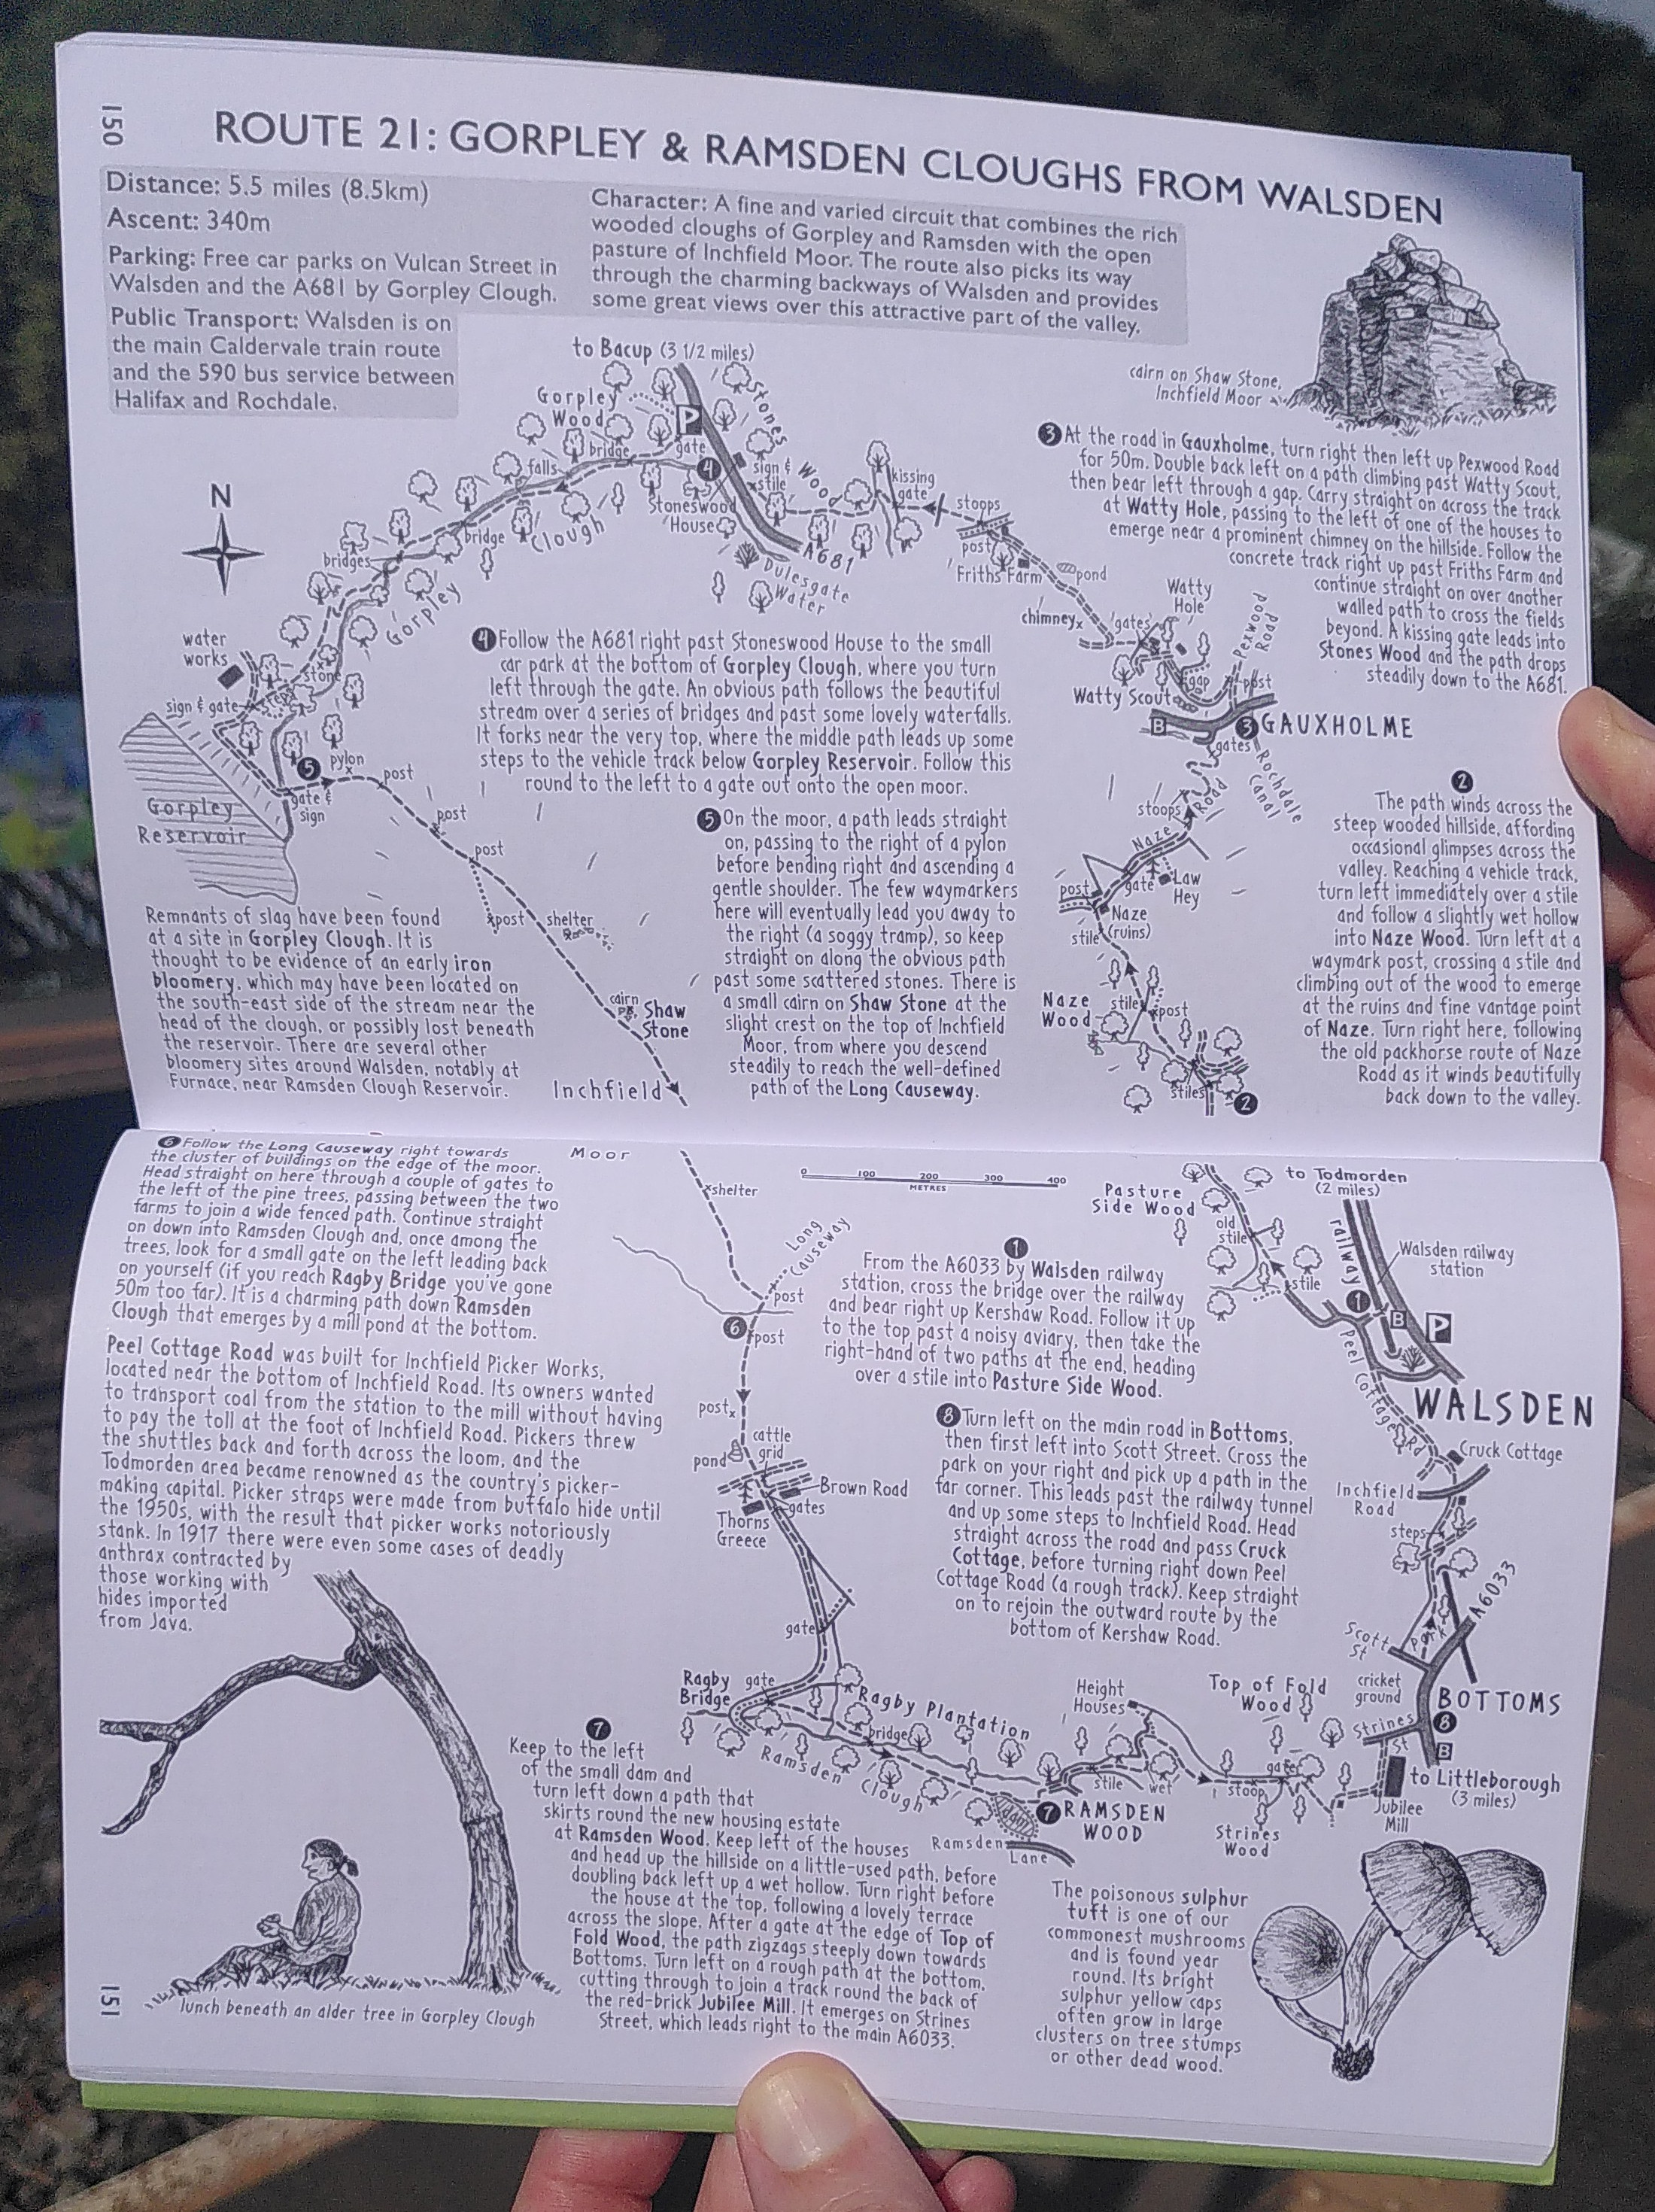 150
ROUTE 21: GORPLEY & RAMSDEN CLOUGHS FROM WALSDEN
Distance: 5.5 miles (8.5km)
Ascent: 340m
Parking: Free car parks on Vulcan Street in
Walsden and the A681 by Gorpley Clough.
Public Transport: Walsden is on
the main Caldervale train route
and the 590 bus service between
Halifax and Rochdale.
Character: A fine and varied circuit that combines the rich
wooded cloughs of Gorpley and Ramsden with the open
pasture of Inchfield Moor. The route also picks its way
through the charming backways of Walsden and provides
some great views over this attractive part of the valley.
cairn on Shaw Stone,
Inchfield Moor
to Bacup (3 1/2 miles)
Gorpley
Wood
P
Stones
Wood
gate
bridge
falls
4
sign &
stile
Stoneswood
House
kissing
gate
stoops
post
Friths Farm
pond
A681
Dulesgate
Water
Clough
bridge
bridges
Gorpley
N
chimney
gates
Watty
Hole
Pexwood
Road
gap
post
Watty Scout
B
3
GAUXHOLME
gates
Rochdale
Canal
stoops
Naze
Road
post
gate
Law
Hey
Naze
(ruins)
stile
Naze
Wood
stile
post
stiles
2
water
works
stone
steps
sign & gate
5
pylon
post
gate &
sign
Gorpley
Reservoir
post
post
post
shelter
cairn
Shaw
Stone
Inchfield
3 At the road in Gauxholme, turn right then left up Pexwood Road
for 50m. Double back left on a path climbing past Watty Scout,
then bear left through a gap. Carry straight on across the track
at Watty Hole, passing to the left of one of the houses to
emerge near a prominent chimney on the hillside. Follow the
concrete track right up past Friths Farm and
continue straight on over another
walled path to cross the fields
beyond. A kissing gate leads into
Stones Wood and the path drops
steadily down to the A681.
4 Follow the A681 right past Stoneswood House to the small
car park at the bottom of Gorpley Clough, where you turn
left through the gate. An obvious path follows the beautiful
stream over a series of bridges and past some lovely waterfalls.
It forks near the very top, where the middle path leads up some
steps to the vehicle track below Gorpley Reservoir. Follow this
round to the left to a gate out onto the open moor.
5 On the moor, a path leads straight
on, passing to the right of a pylon
before bending right and ascending a
gentle shoulder. The few waymarkers
here will eventually lead you away to
the right (a soggy tramp), so keep
straight on along the obvious path
past some scattered stones. There is
a small cairn on Shaw Stone at the
slight crest on the top of Inchfield
Moor, from where you descend
steadily to reach the well-defined
path of the Long Causeway.
2
The path winds across the
steep wooded hillside, affording
occasional glimpses across the
valley. Reaching a vehicle track,
turn left immediately over a stile
and follow a slightly wet hollow
into Naze Wood. Turn left at a
waymark post, crossing a stile and
climbing out of the wood to emerge
at the ruins and fine vantage point
of Naze. Turn right here, following
the old packhorse route of Naze
Road as it winds beautifully
back down to the valley.
Remnants of slag have been found
at a site in Gorpley Clough. It is
thought to be evidence of an early iron
bloomery, which may have been located on
the south-east side of the stream near the
head of the clough, or possibly lost beneath
the reservoir. There are several other
bloomery sites around Walsden, notably at
Furnace, near Ramsden Clough Reservoir.
6 Follow the Long Causeway right towards
the cluster of buildings on the edge of the moor.
Head straight on here through a couple of gates to
the left of the pine trees, passing between the two
farms to join a wide fenced path. Continue straight
on down into Ramsden Clough and, once among the
trees, look for a small gate on the left leading back
on yourself (if you reach Ragby Bridge you've gone
50m too far). It is a charming path down Ramsden
Clough that emerges by a mill pond at the bottom.
Peel Cottage Road was built for Inchfield Picker Works,
located near the bottom of Inchfield Road. Its owners wanted
to transport coal from the station to the mill without having
to pay the toll at the foot of Inchfield Road. Pickers threw
the shuttles back and forth across the loom, and the
Todmorden area became renowned as the country's picker-
making capital. Picker straps were made from buffalo hide until
the 1950s, with the result that picker works notoriously
stank. In 1917 there were even some cases of deadly
anthrax contracted by
those working with
hides imported
from Java.
Moor
shelter
0 100 200 300 400
METRES
Long
Causeway
post
6
post
post
cattle
grid
pond
Brown Road
gates
Thorns
Greece
gate
Ragby
Bridge
gate
Ragby Plantation
bridge
Ramsden Clough
dam
Ramsden
Lane
7
RAMSDEN
WOOD
Height
Houses
stile
wet
Top of Fold
Wood
gate
stoop
Strines
Wood
Strines
St
Jubilee
Mill
to Littleborough
(3 miles)
B
8
BOTTOMS
cricket
ground
Scott
St
Park
A6033
steps
Inchfield
Road
Cruck Cottage
WALSDEN
Peel Cottage Rd
P
B
1
railway
Walsden railway
station
to Todmorden
(2 miles)
Pasture
Side Wood
old
stile
stile
1
From the A6033 by Walsden railway
station, cross the bridge over the railway
and bear right up Kershaw Road. Follow it up
to the top past a noisy aviary, then take the
right-hand of two paths at the end, heading
over a stile into Pasture Side Wood.
8 Turn left on the main road in Bottoms,
then first left into Scott Street. Cross the
park on your right and pick up a path in the
far corner. This leads past the railway tunnel
and up some steps to Inchfield Road. Head
straight across the road and pass Cruck
Cottage, before turning right down Peel
Cottage Road (a rough track). Keep straight
on to rejoin the outward route by the
bottom of Kershaw Road.
7
Keep to the left
of the small dam and
turn left down a path that
skirts round the new housing estate
at Ramsden Wood. Keep left of the houses
and head up the hillside on a little-used path, before
doubling back left up a wet hollow. Turn right before
the house at the top, following a lovely terrace
across the slope. After a gate at the edge of Top of
Fold Wood, the path zigzags steeply down towards
Bottoms. Turn left on a rough path at the bottom,
cutting through to join a track round the back of
the red-brick Jubilee Mill. It emerges on Strines
Street, which leads right to the main A6033.
The poisonous sulphur
tuft is one of our
commonest mushrooms
and is found year
round. Its bright
sulphur yellow caps
often grow in large
clusters on tree stumps
or other dead wood.
lunch beneath an alder tree in Gorpley Clough
151